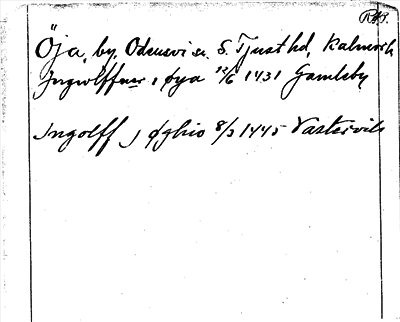 RAP.
Öja, by, Odensvi sn. S. Tjust hd, Kalmar l.
Ingwolffwer i øya 12/6 1431 Gamleby
Ingolff i øghio 8/3 1445 Västervik